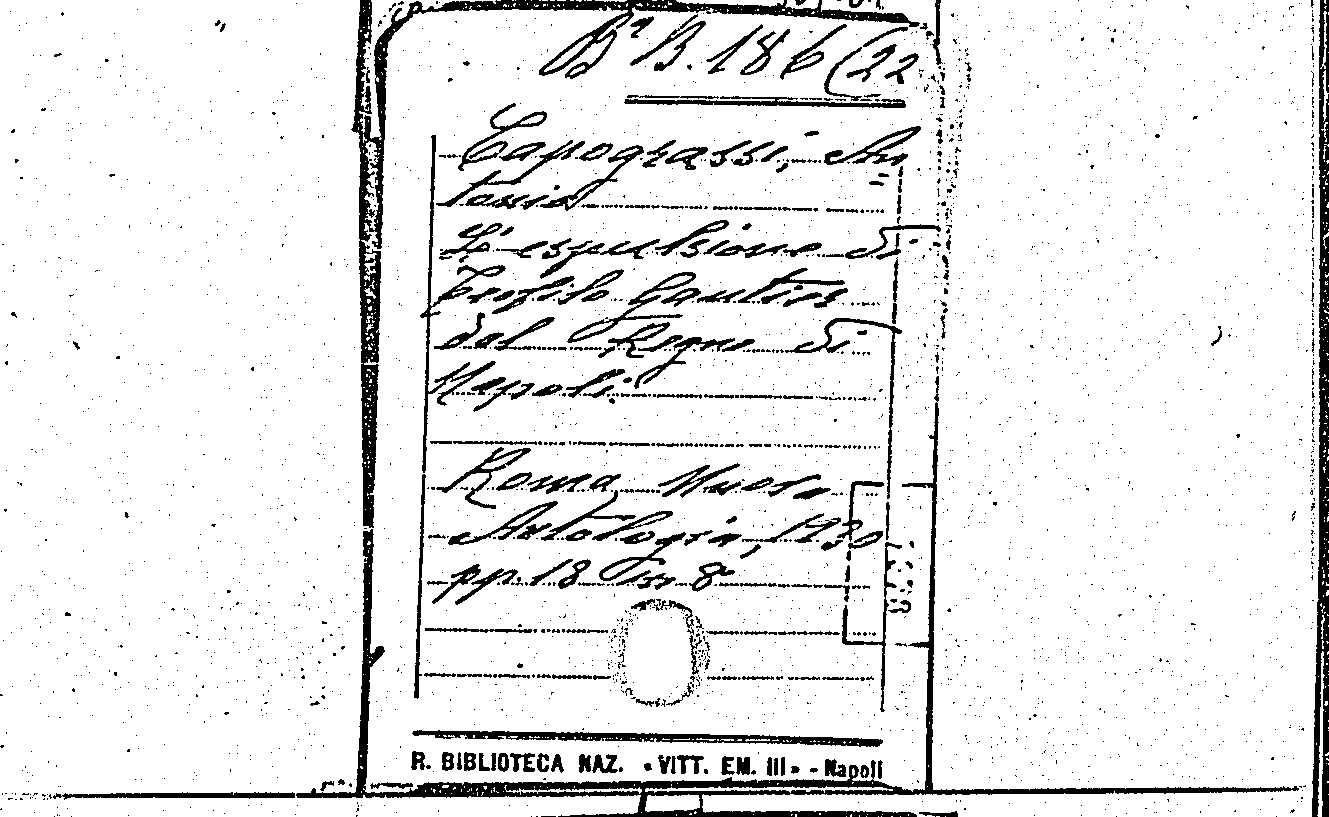 Bª B. 186 (22
Capograssi, An
tonio
L'espulsione di
Teofilo Gautier
dal Regno di
Napoli.
Roma, Nuova
Antologia, 1930
pp. 18 in 8º
R. BIBLIOTECA NAZ. «VITT. EM. III» - Napoli